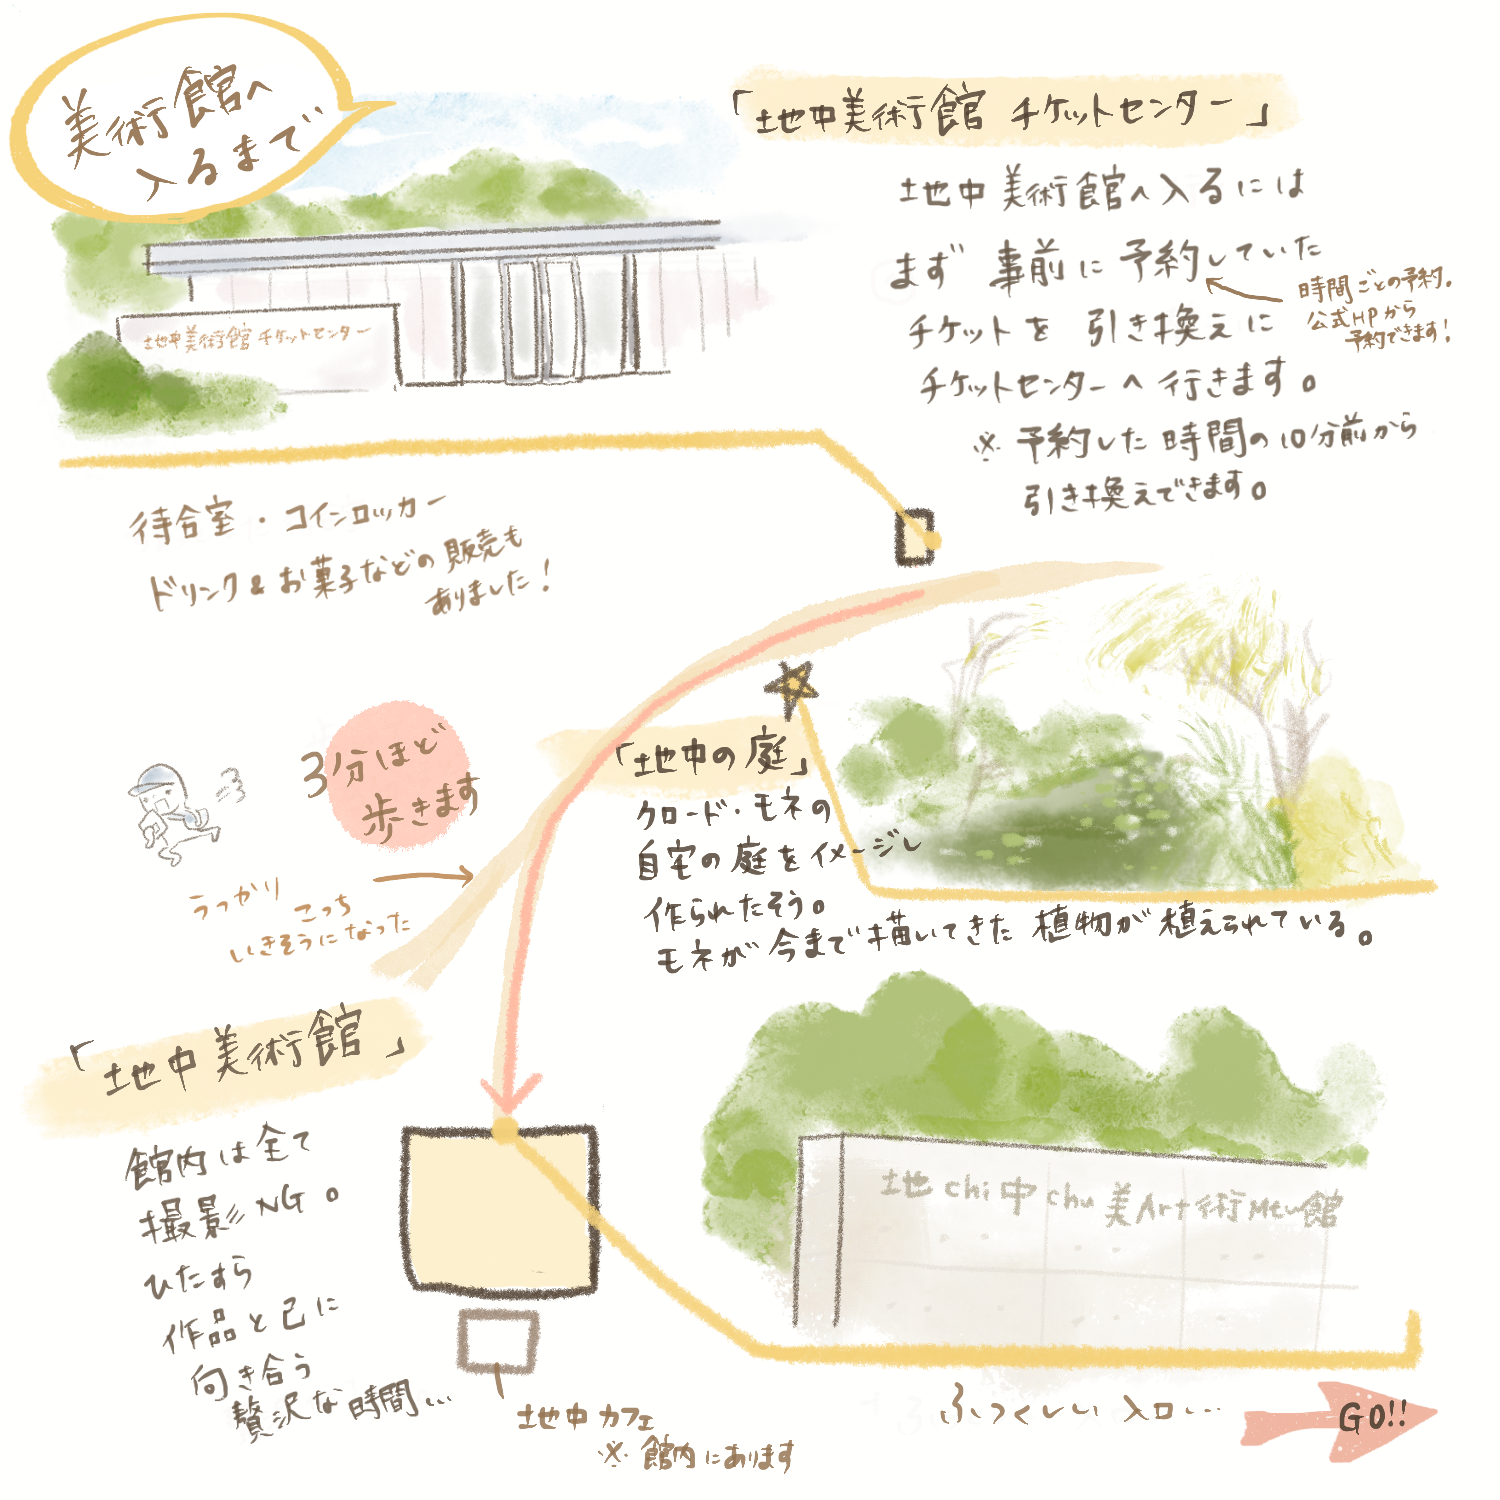 美術館へ
入るまで
「地中美術館 チケットセンター」
地中美術館へ入るには
まず 事前に予約していた
チケットを 引き換えに
チケットセンターへ行きます。
※予約した時間の10分前から
引き換えできます。
時間ごとの予約。
公式HPから
予約できます!
地中美術館チケットセンター
待合室・コインロッカー
ドリンク&お菓子などの販売も
ありました!
3分ほど
歩きます
うっかり
こっち
いきそうになった
「地中の庭」
クロード・モネの
自宅の庭をイメージし
作られたそう。
モネが今まで描いてきた 植物が植えられている。
「地中美術館」
館内は全て
撮影NG。
ひたすら
作品と己に
向き合う
贅沢な時間...
地中カフェ
※館内にあります
地chi中chu美Art術Mu館
ふつくしい 入口...
GO!!